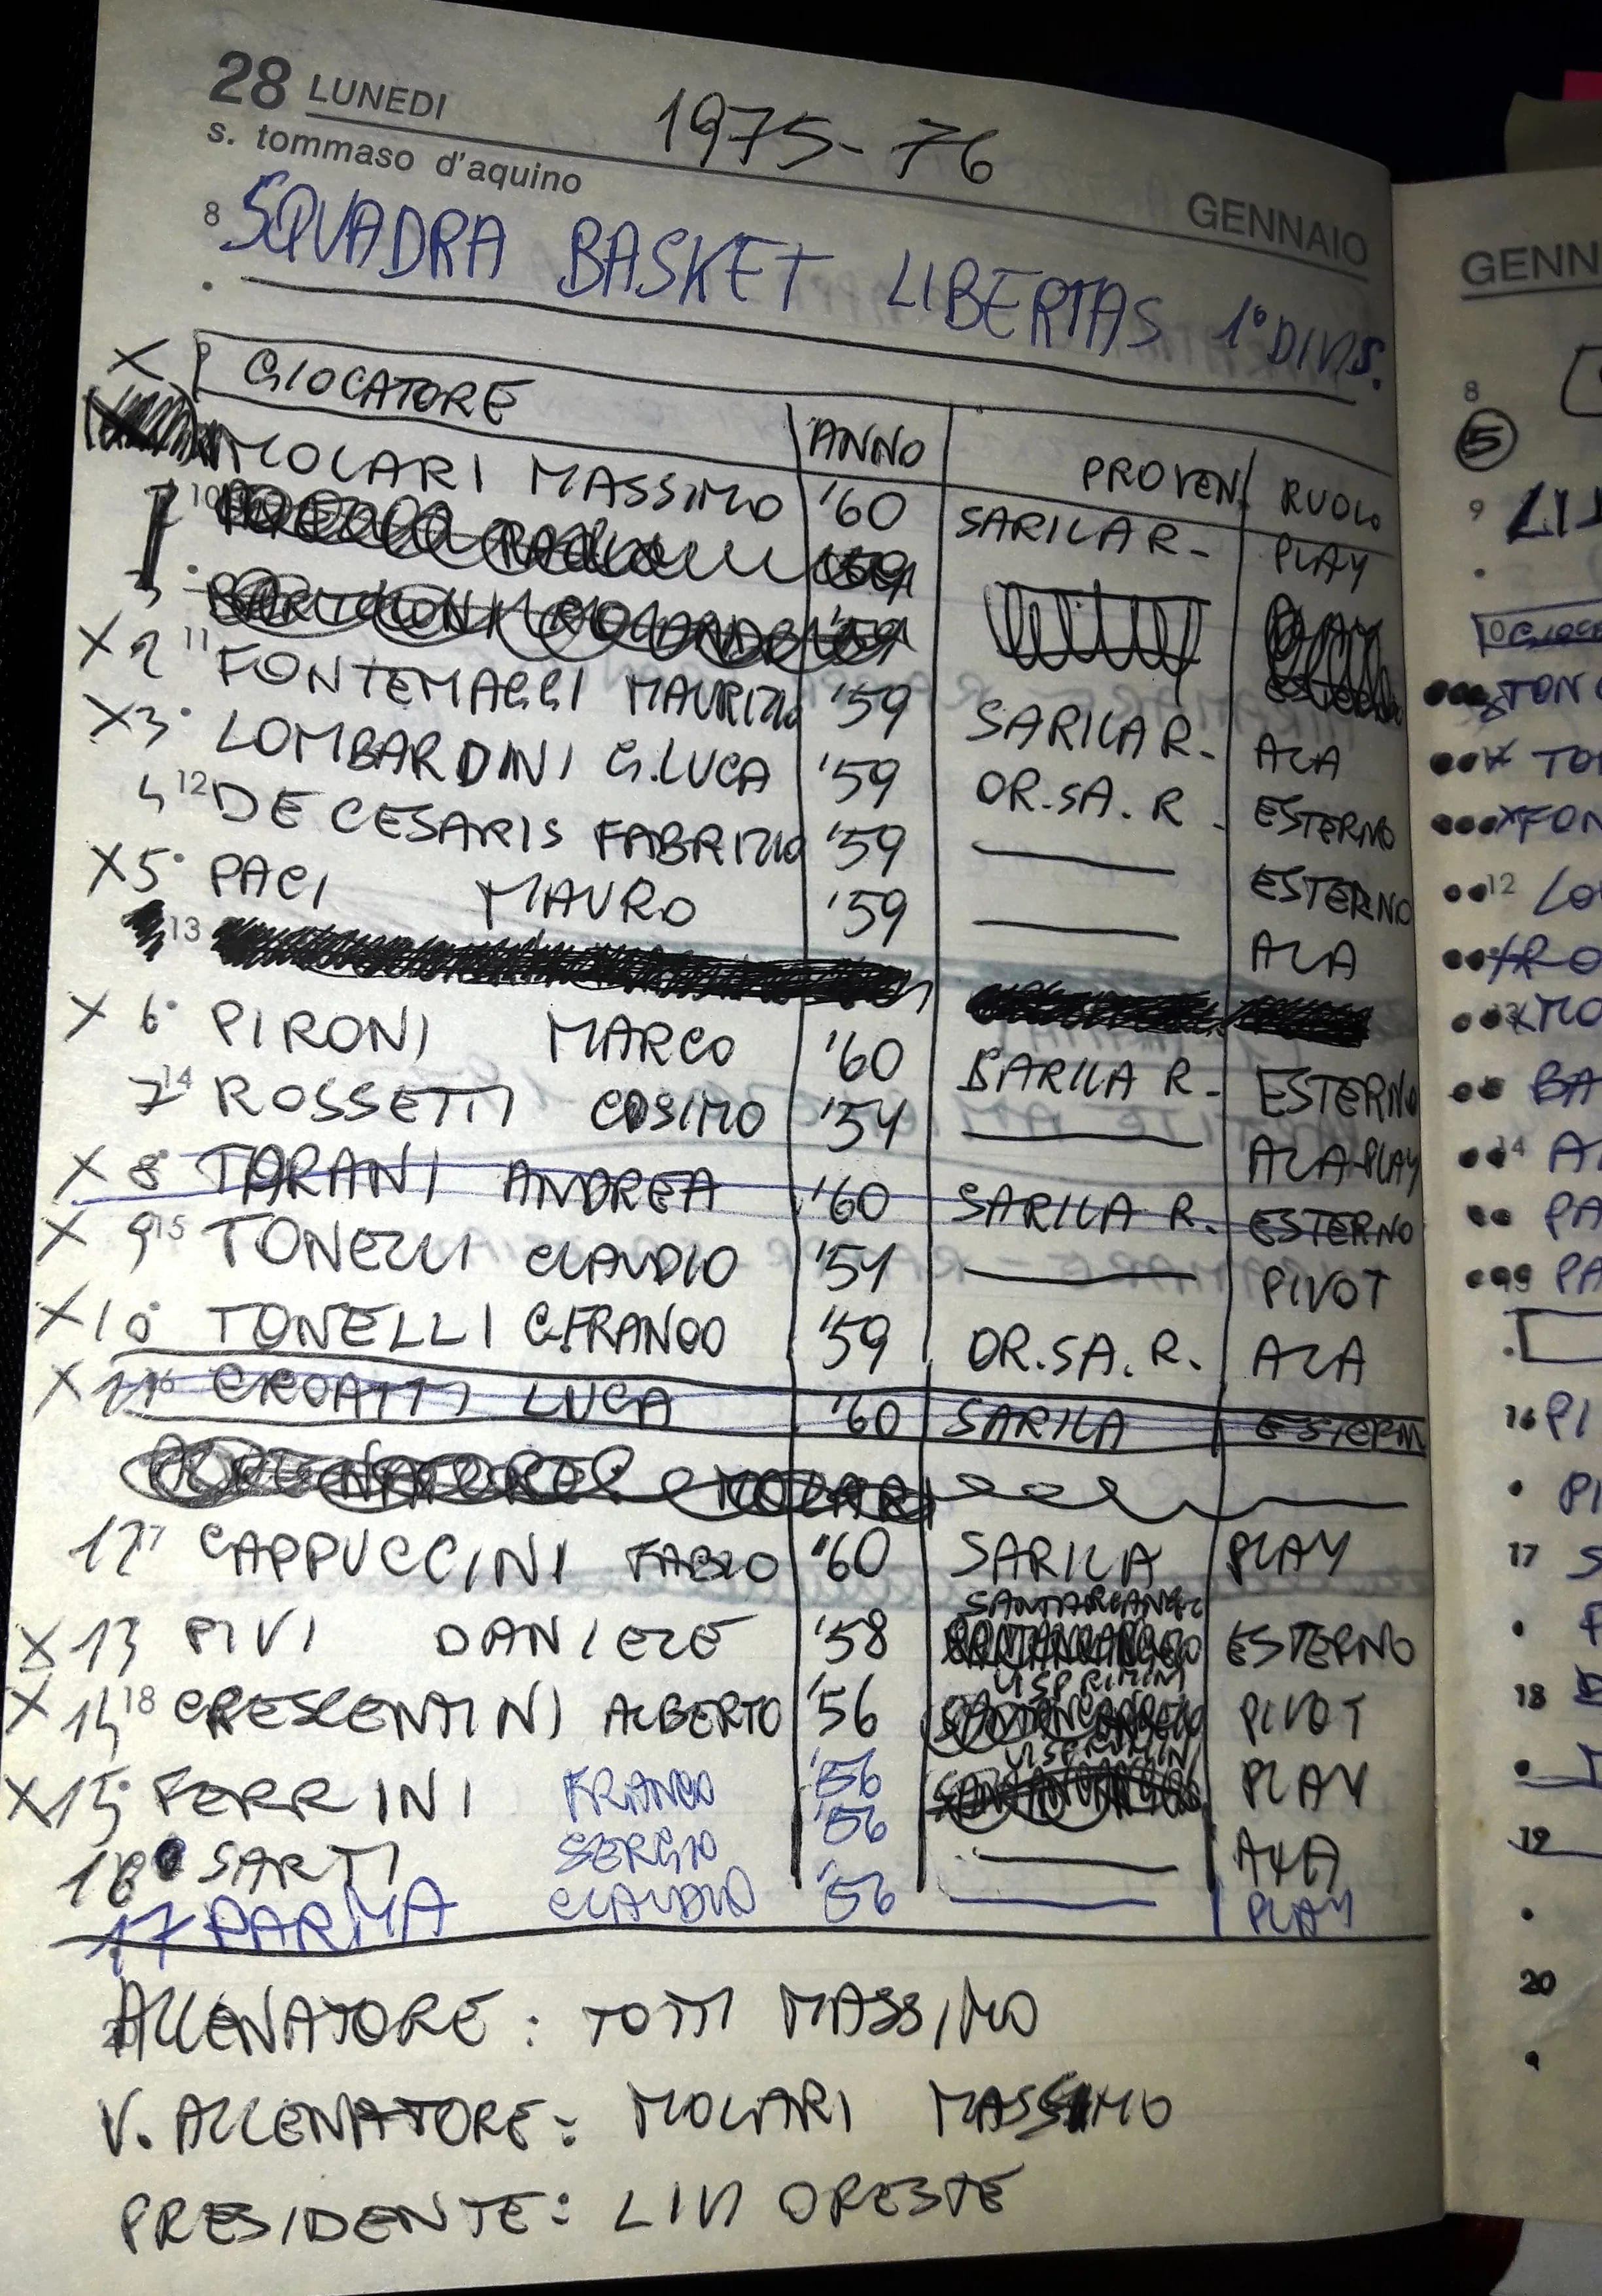 28 LUNEDI
s. tommaso d'aquino
1975-76
GENNAIO
8 SQUADRA BASKET LIBERTAS 1° DIVIS.
X GIOCATORE ANNO PROVEN. RUOLO
MOLARI MASSIMO '60 SARILA R- PLAY
10
X 2 11 FONTEMAGGI MAURIZIO '59 SARILA R- ALA
X3° LOMBARDINI G.LUCA '59 OR.SA.R- ESTERNO
4 12 DE CESARIS FABRIZIO '59 — ESTERNO
X5° PACI MAURO '59 — ALA
13
X 6° PIRONI MARCO '60 BARILA R- ESTERNO
7 14 ROSSETTI COSIMO '54 — ALA-PLAY
X 8° TARANI ANDREA '60 SARILA R. ESTERNO
X 9 15 TONELLI CLAUDIO '54 — PIVOT
X10° TONELLI G.FRANCO '59 OR.SA.R. ALA
X 11 16 CROATTI LUCA '60 SARILA ESTERN
MOLARI
12 17 CAPPUCCINI FABIO '60 SARILA PLAY
X13 PIVI DANIELE '58 SANTARCANGELO ESTERNO
X 14 18 CRESCENTINI ALBERTO '56 VISPRIMINI PIVOT
X15° FERRINI FRANCO '56 VISPRIMINI PLAY
16 SARTI SERGIO '56 — ALA
17 PARMA CLAUDIO '56 — PLAY
ALLENATORE: TOTTI MASSIMO
V. ALLENATORE: MOLARI MASSIMO
PRESIDENTE: LIVI ORESTE
GENN
8
5
9
TON
TO
XFON
12 LO
RO
XMO
BA
14 A
PA
PA
16 PI
PI
17 S
18
19
20